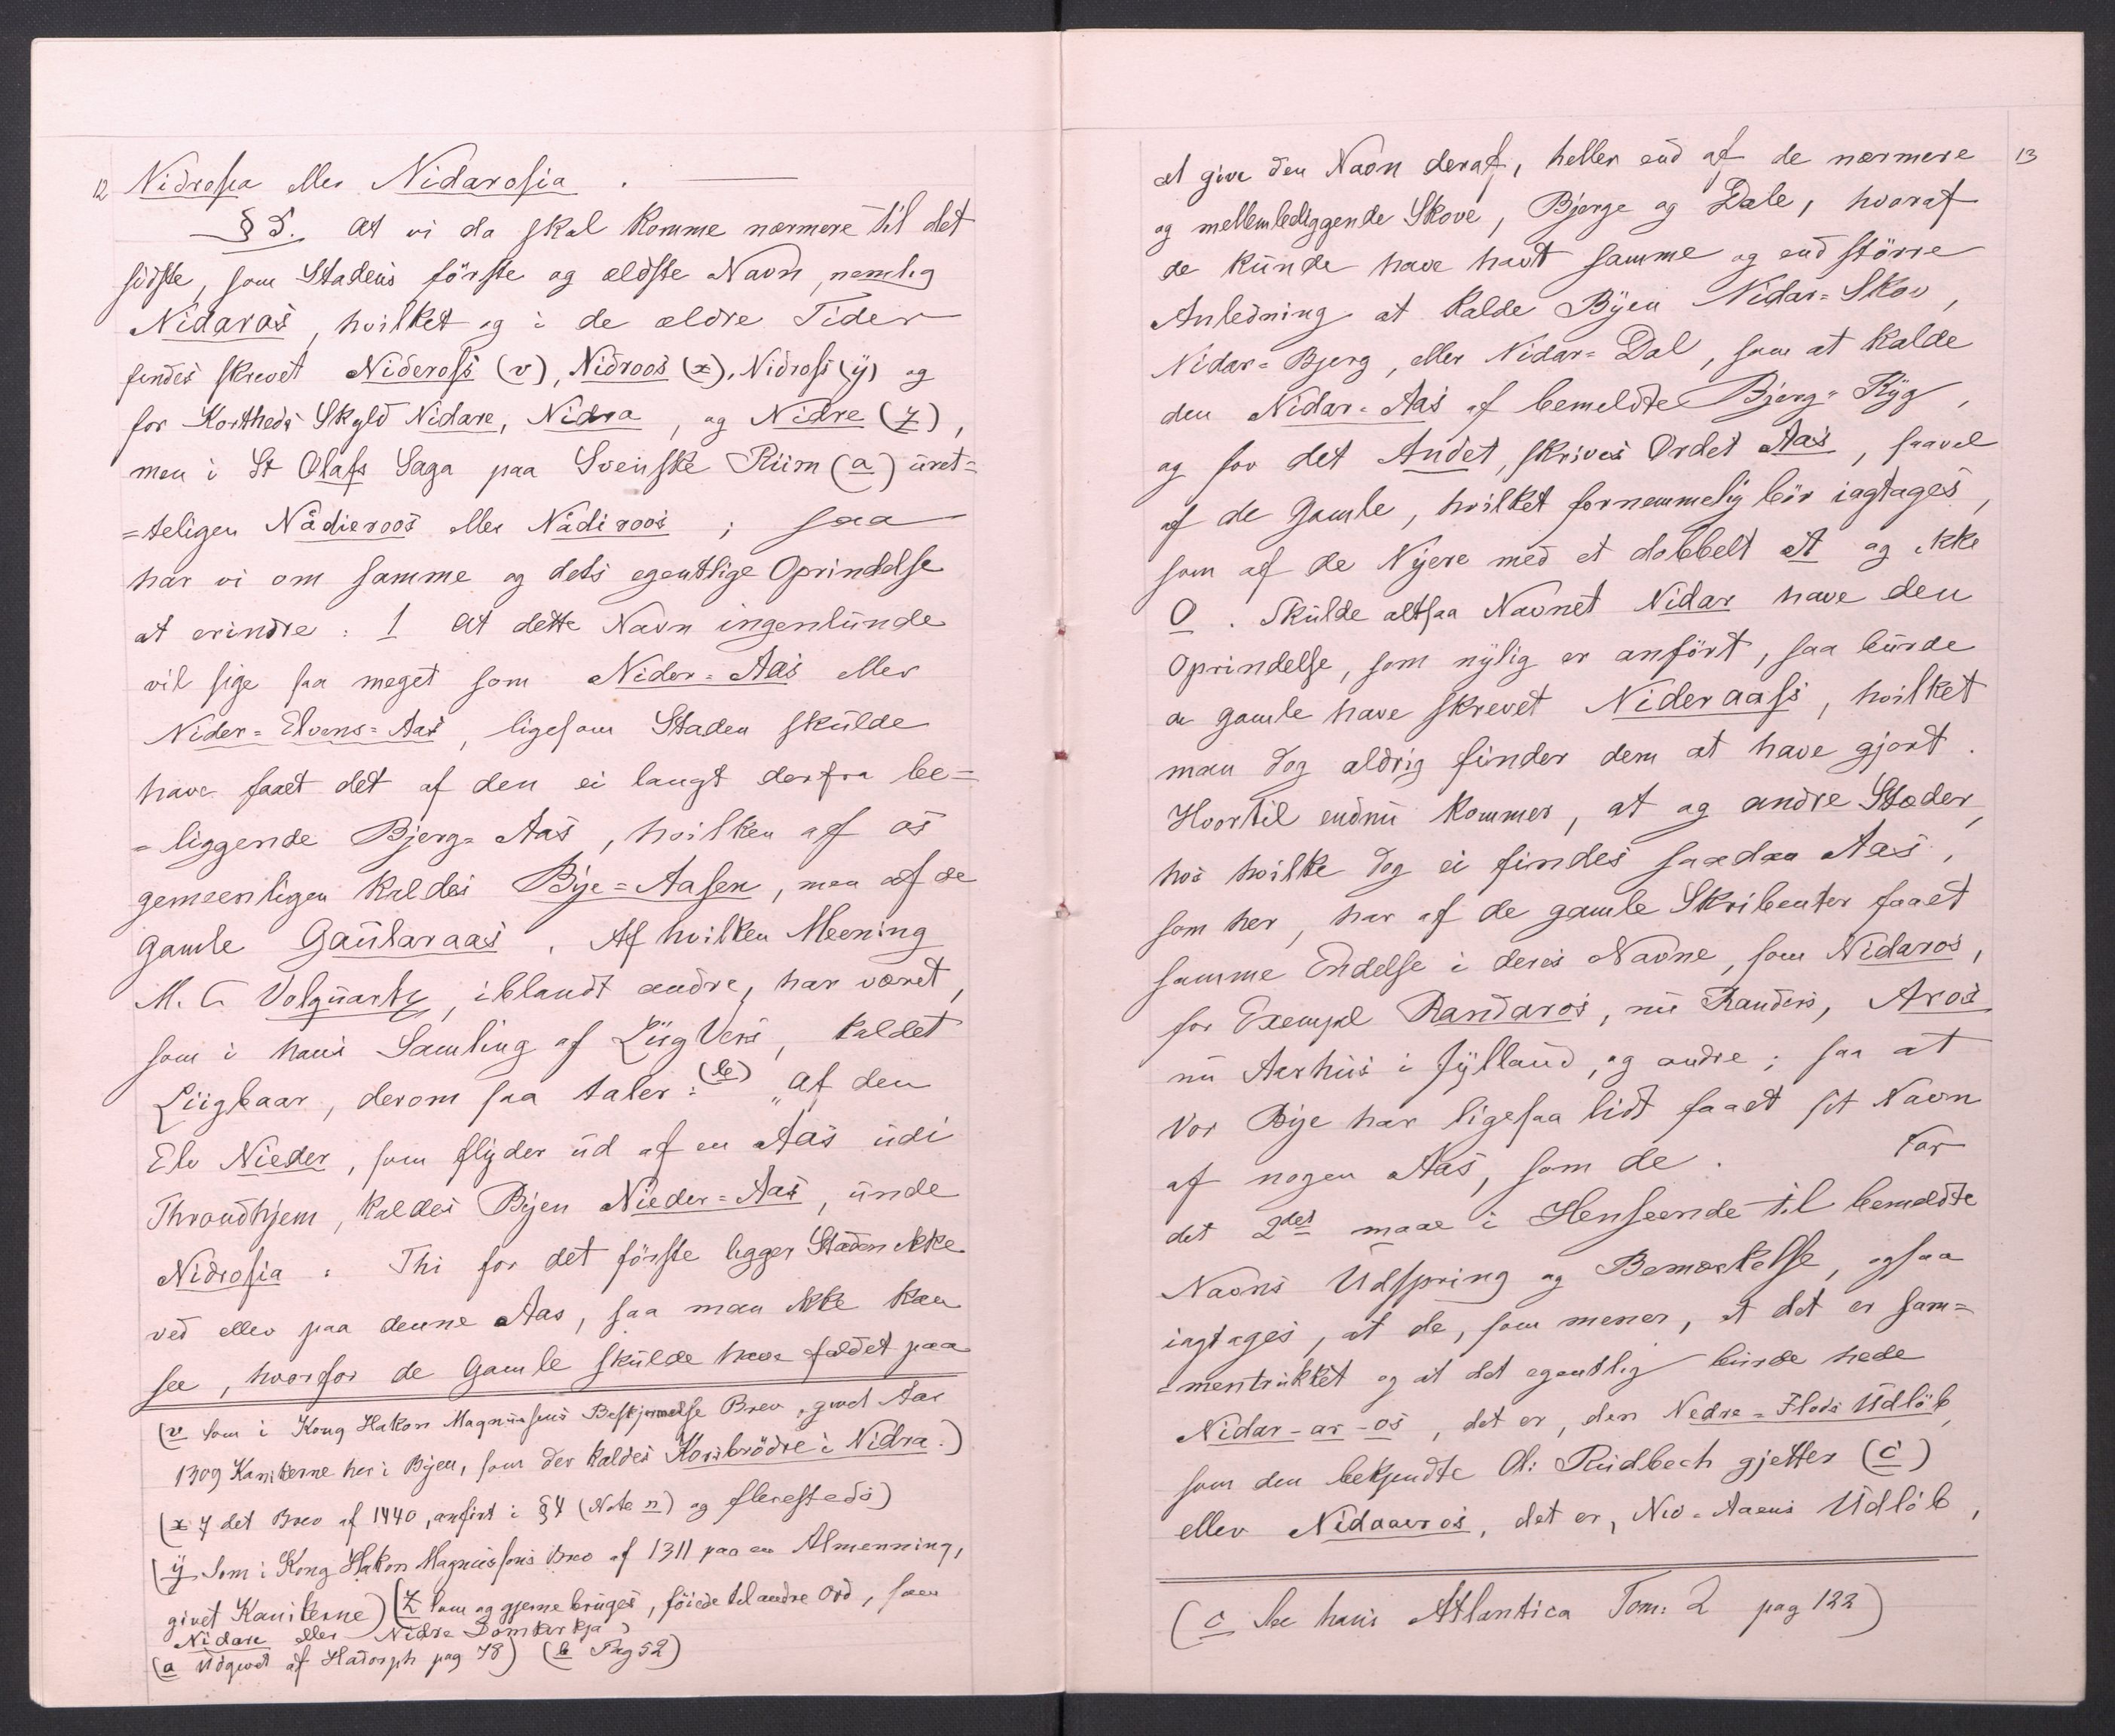 12 Nidrosia eller Nidarosia .
§ 5. At vi da skal komme nærmere til det
sidste, som Stadens förste og ældste Navn, nemlig
Nidaros, hvilket og i de ældre Tider
findes skrevet Nideross (v), Nidroos (x), Nidross (y) og
for Kortheds Skyld Nidare, Nidra, og Nidre (z),
men i St Olafs Saga paa Svenske Riim (a) uret=
=teligen Nådieroos eller Nådiroos ; saa
har vi om samme og dets egentlige Oprindelse
at erindre : 1 At dette Navn ingenlunde
vil sige saa meget som Nider=Aas eller
Nider=Elvens=Aas, ligesom Staden skulde
have faaet det af den ei langt derfra be=
=liggende Bjerg=Aas, hvilken af os
gemeenligen kaldes Bye=Aasen, men af de
Gamle Gaularaas. Af hvilken Meening
M. C Volquartz, iblandt andre, har været,
som i hans Samling af Liig Vers, kaldet
Liigbaar, derom saa taler : (b) „af den
Elv Nieder, som flyder ud af en Aas udi
Throndhjem, kaldes Byen Nieder=Aas, unde
Nidrosia . Thi for det förste ligger Staden ikke
ved eller paa denne Aas, saa man ikke kan
see, hvorfor de Gamle skulde have faldet paa
(v Som i Kong Hakon Magnussens Beskjermelse Brev, givet Aar
1309 Kanikerne her i Byen, som der kaldes Korsbrödre i Nidra.)
(x I det Brev af 1440, anfört i § 4 (Note n) og fleresteds)
(y Som i Kong Hakon Magnussons Brev af 1311 paa en Almenning,
givet Kanikerne) (z Som og gjerne bruges, föiede til andre Ord, som
Nidare eller Nidre Domkirkja)
(a Udgivet af Hadorph pag 78) (b Pag 52)
at give den Navn deraf, heller end af de nærmere 13
og mellemliggende Skove, Bjerge og Dale, hvoraf
de kunde have havt samme og end större
Anledning at kalde Byen Nidar=Skov,
Nidar=Bjerg, eller Nidar=Dal, som at kalde
den Nidar=Aas af bemeldte Bjerg=Ryg,
og for det Andet, skrives Ordet Aas, saavel
af de Gamle, hvilket fornemmelig bör iagtages,
som af de Nyere med et dobbelt A og ikke
O. Skulde altsaa Navnet Nidar have den
Oprindelse, som nylig er anfört, saa burde
de gamle have skrevet Nideraass, hvilket
man dog aldrig finder dem at have gjort.
Hvortil endnu kommer, at og andre Stæder,
hos hvilke dog ei findes saadan Aas,
som her, har af de gamle Skribenter faaet
samme Endelse i deres Navne, som Nidaros,
for Exempel Randaros, nu Randers, Aros
nu Aarhus i Jylland, og andre; saa at
vor Bye har ligesaa lidt faaet sit Navn
af nogen Aas, som de . For
det 2det maae i Henseende til bemeldte
Navns Udspring og Bemærkelse, ogsaa
iagtages, at de, som mener, at det er sam=
=mentrukket og at det egentlig burde hede
Nidar-ar-os, det er, den Nedre=Flods Udlöb,
som den bekjendte Ol: Rudbech gjetter (c)
eller Nidaaeros, det er, Nid=Aaens Udlöb,
(c See hans Atlantica Tom: 2 pag 122)